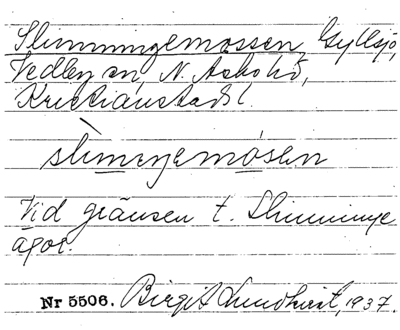 Slimmingemossen, Gyllsjö,
Vedby sn, N. Åsbo hd,
Kristianstads l.
slimiŋemósen
Vid gränsen t. Slimminge
ägor.
Nr 5506. Birgit Lundkvist, 1937.